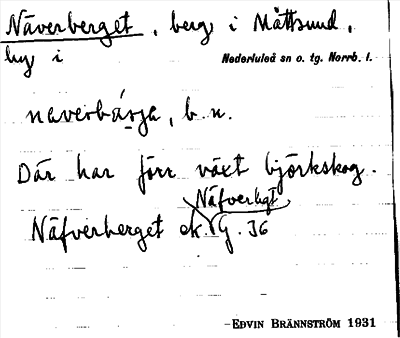 Näverberget, berg i Måttsund,
by i Nederluleå sn o. tg. Norrb. l.
neverbárja, b. n.
Där har förr växt björkskog.
Näfverbgt
Näfverberget ek. G. 36
EDVIN BRÄNNSTRÖM 1931